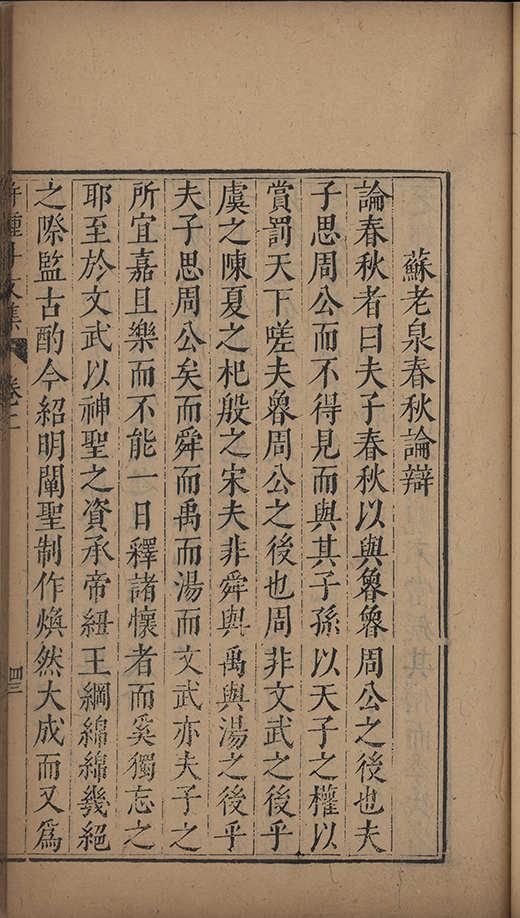 蘇老泉春秋論辯
論春秋者曰夫子春秋以與魯魯周公之後也夫
子思周公而不得見而與其子孫以天子之權以
賞罰天下嗟夫魯周公之後也周非文武之後乎
虞之陳夏之杞殷之宋夫非舜與禹與湯之後乎
夫子思周公矣而舜而禹而湯而文武亦夫子之
所宜嘉且樂而不能一日釋諸懷者而奚獨忘之
耶至於文武以神聖之資承帝紐王綱綿綿幾絕
之際監古酌今紹明闡聖制作煥然大成而又為
文集 卷二 四三